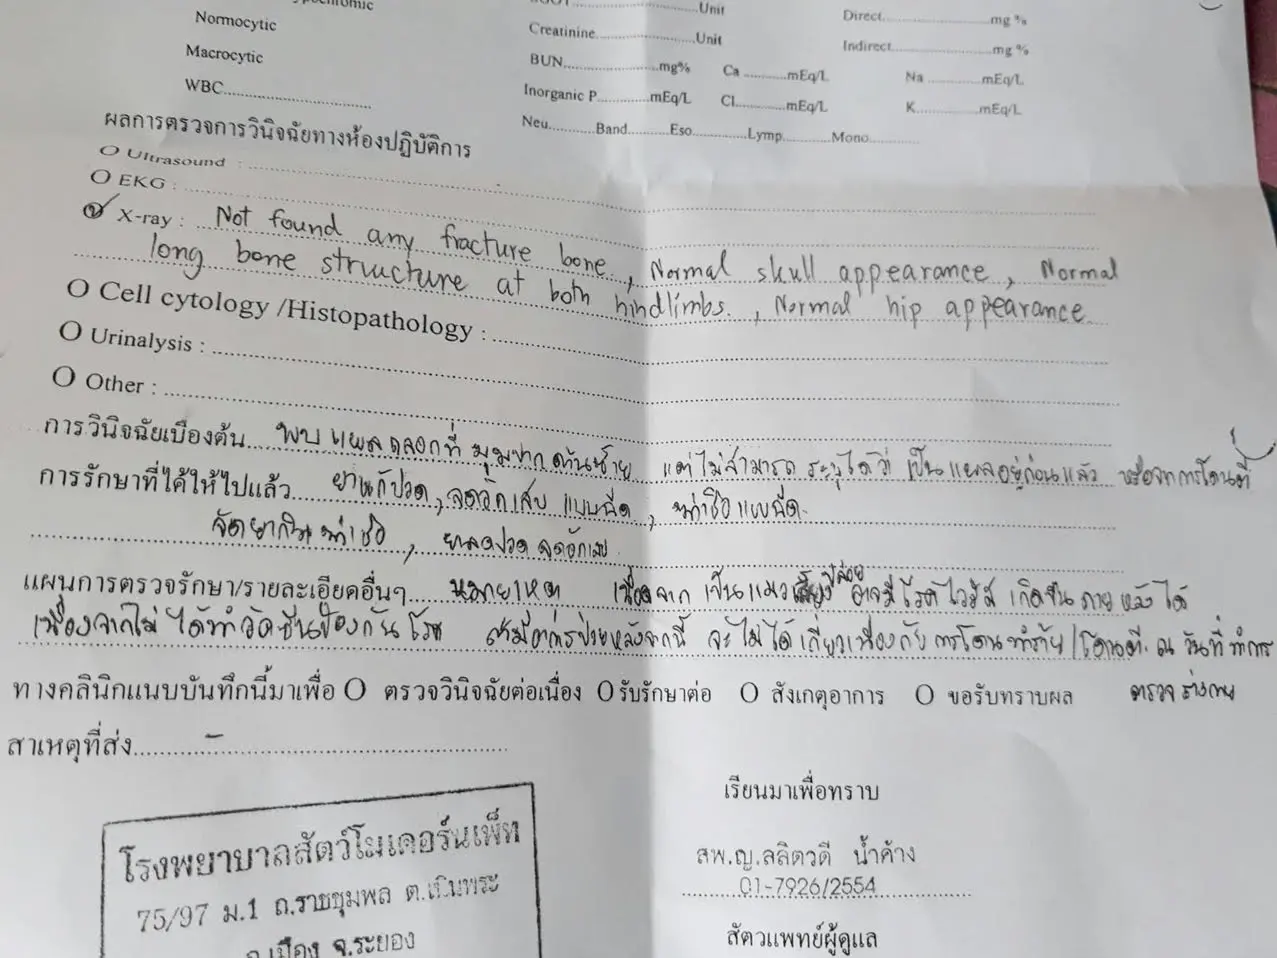 Normocytic
Macrocytic
WBC
Unit
Creatinine Unit
BUN mg% Ca mEq/L
Inorganic P mEq/L Cl mEq/L
Neu Band Eso Lymp Mono
Direct mg %
Indirect mg %
Na mEq/L
K mEq/L
ผลการตรวจการวินิจฉัยทางห้องปฏิบัติการ
O Ultrasound :
O EKG :
O X-ray : Not found any fracture bone, Normal skull appearance, Normal
long bone structure at both hindlimbs., Normal hip appearance
O Cell cytology /Histopathology :
O Urinalysis :
O Other :
การวินิจฉัยเบื้องต้น พบแผลถลอกที่มุมปากด้านซ้าย แต่ไม่สามารถระบุได้ว่า เป็นแผลอยู่ก่อนแล้ว หรือจากการโดนตี
การรักษาที่ได้ให้ไปแล้ว ยาแก้ปวด, ลดอักเสบ แบบฉีด, ฆ่าเชื้อแบบฉีด
จัดยากินฆ่าเชื้อ, ยาลดปวด ลดอักเสบ
แผนการตรวจรักษา/รายละเอียดอื่นๆ หมายเหตุ เนื่องจาก เป็นแมวเลี้ยงปล่อย อาจมีโรคไวรัส เกิดขึ้นภายหลังได้
เนื่องจากไม่ได้ทำวัคซีนป้องกันโรค จะไม่ได้เกี่ยวเนื่องกับการโดนทำร้าย/โดนตี ณ วันที่ทำการ
ตรวจร่างกาย
ทางคลินิกแนบบันทึกนี้มาเพื่อ O ตรวจวินิจฉัยต่อเนื่อง O รับรักษาต่อ O สังเกตุอาการ O ขอรับทราบผล
สาเหตุที่ส่ง -
เรียนมาเพื่อทราบ
สพ.ญ.ลลิตวดี น้ำค้าง
01-7926/2554
สัตวแพทย์ผู้ดูแล
โรงพยาบาลสัตว์โมเดอร์นเพ็ท
75/97 ม.1 ถ.ราชชุมพล ต.เนินพระ
อ.เมือง จ.ระยอง